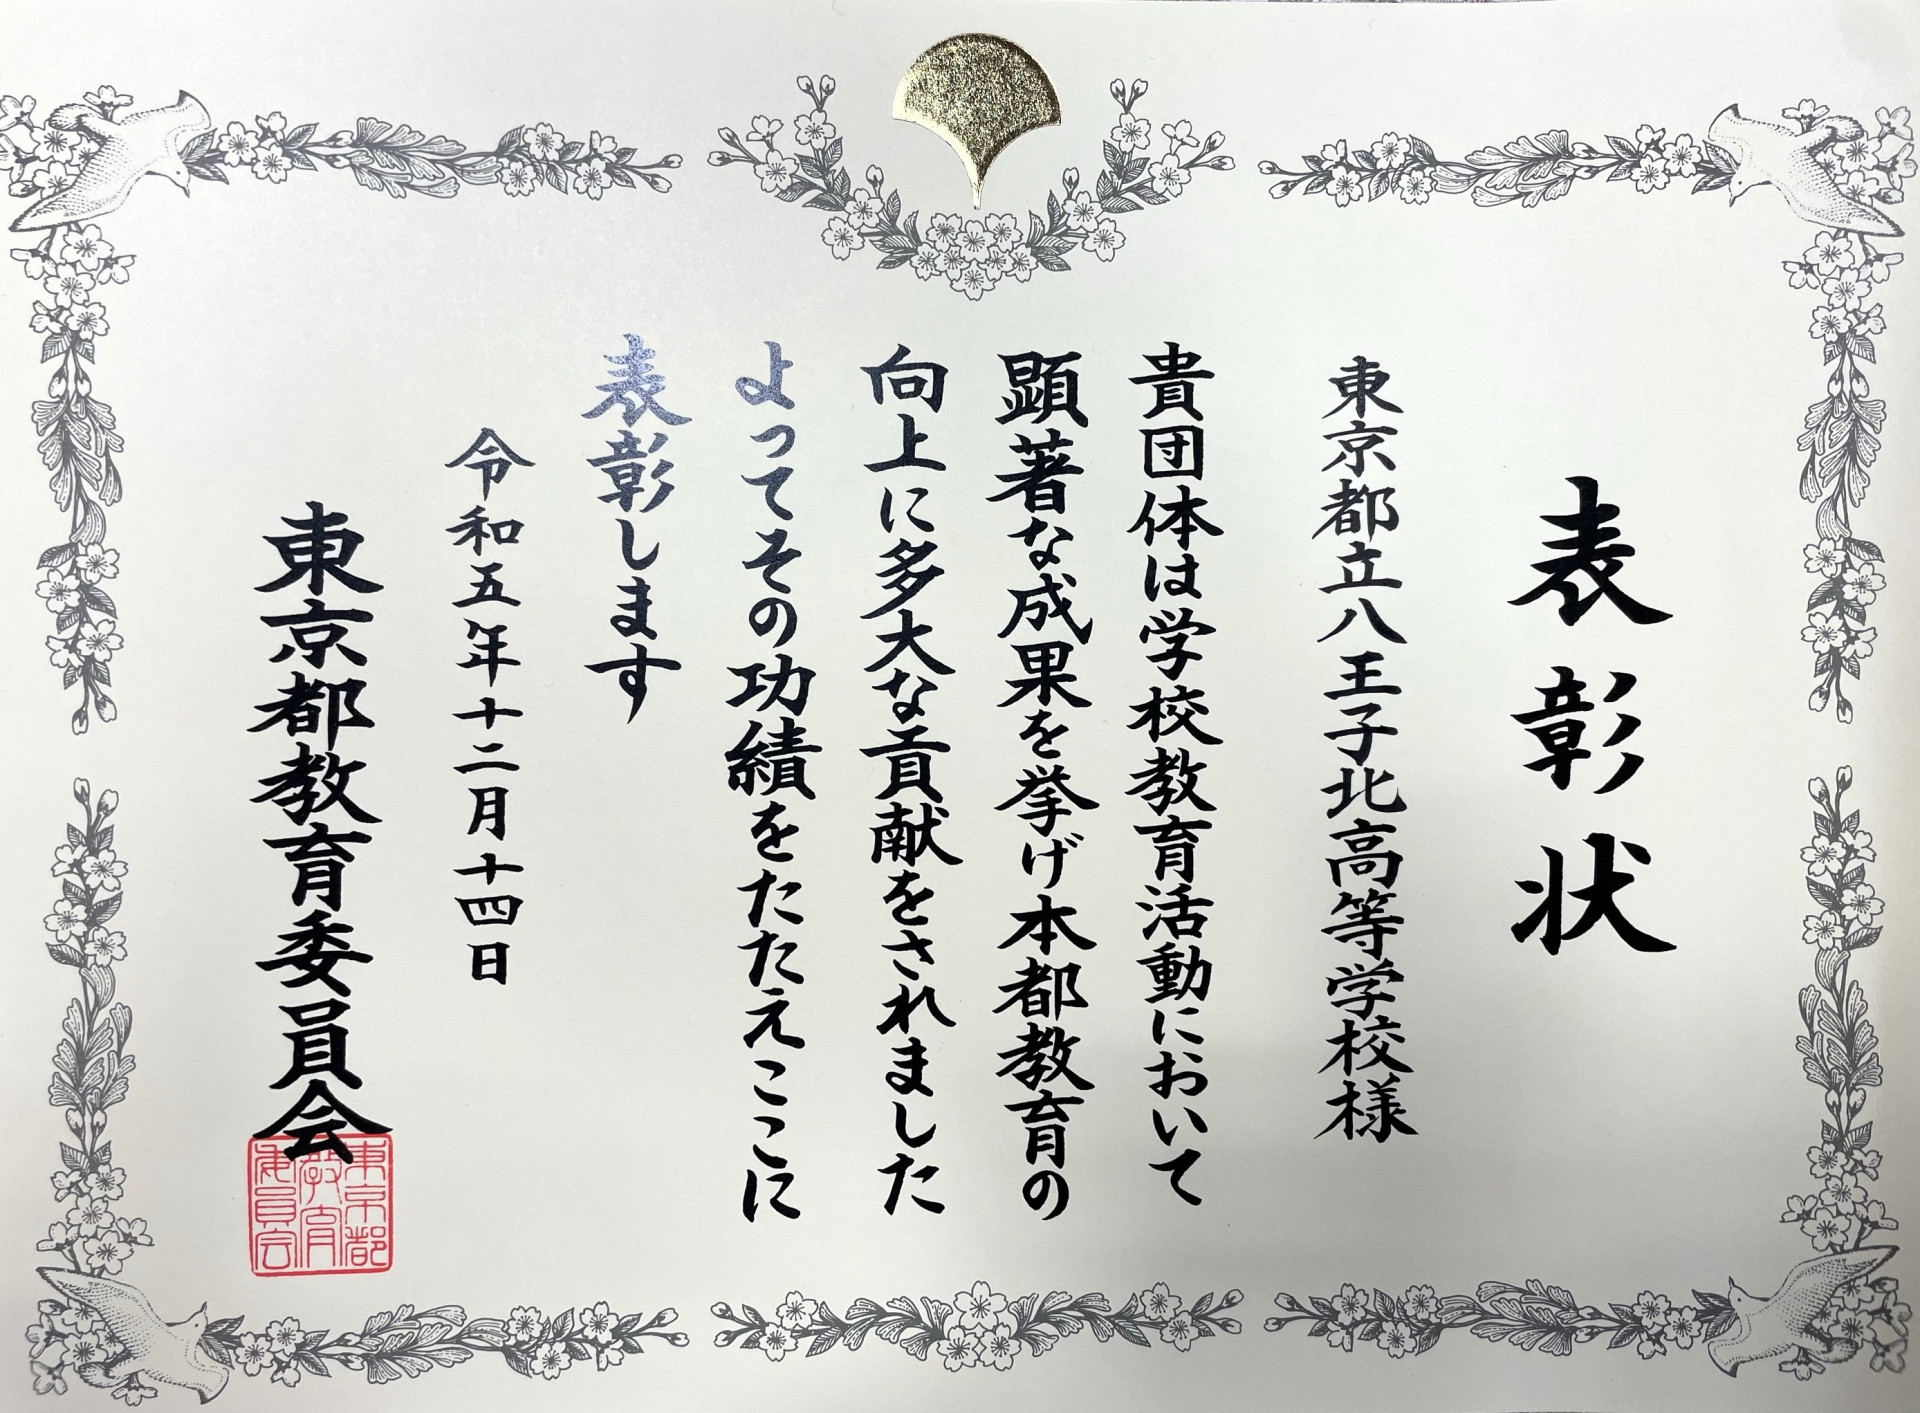 表彰状
東京都立八王子北高等学校様
貴団体は学校教育活動において
顕著な成果を挙げ本都教育の
向上に多大な貢献をされました
よってその功績をたたえここに
表彰します
令和五年十二月十四日
東京都教育委員会
東京都
教育
委員会